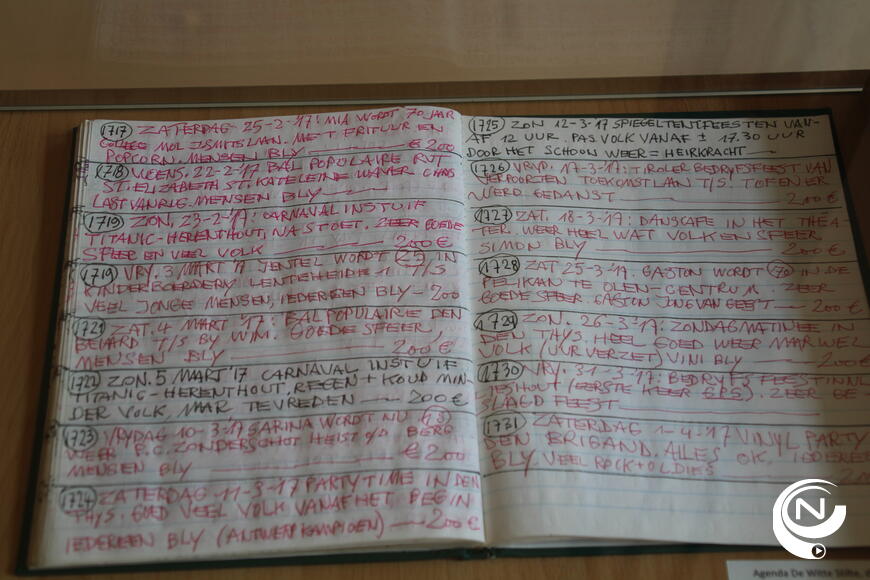 1717 ZATERDAG 25-2-17: MIA WORDT 70 JAAR
MOL MET FRITUUR EN
POPCORN. MENSEN BLY € 200
1718 WOENS. 22-2-17 BAL POPULAIRE RVT
ST. ELIZABETH ST. KATELEINE WAVER
BLY
1719 ZON. 23-2-17: CARNAVAL INSTUIF
TITANIC-HERENTHOUT, NA STOET. ZEER GOEDE
SFEER EN VEEL VOLK 200€
1719 VRY. 3 MAART 17 JENTEL WORDT 25 IN
KINDERBOERDERY T/S
VEEL JONGE MENSEN, IEDEREEN BLY - 200
1721 ZAT. 4 MAART '17: BAL POPULAIRE DEN
T/S BY WIM. GOEDE SFEER
MENSEN BLY 200€
1722 ZON. 5 MAART '17 CARNAVAL INSTUIF
TITANIC-HERENTHOUT, REGEN + KOUD MIN-
DER VOLK, MAAR TEVREDEN — 200€
1723 VRYDAG 10-3-17 SARINA WORDT NU
WEER P.C. ZONDERSCHOT HEIST O/D BERG
MENSEN BLY € 200
1724 ZATERDAG 11-3-17 PARTYTIME IN DEN
THYS. GOED VEEL VOLK VANAF HET BEGIN
IEDEREEN BLY (ANTWERP KAMPIOEN) — 200€
1725 ZON 12-3-17 SPIEGELTENTFEESTEN VAN-
AF 12 UUR. PAS VOLK VANAF ± 17.30 UUR
DOOR HET SCHOON WEER = HEIRKRACHT
1726 VRYD. 17-3-17: TIROLER BEDRYFSFEEST VAN
VERPOORTEN TOEKOMSTLAAN T/S. TOF EN ER
WERD GEDANST 200€
1727 ZAT. 18-3-17: DANSCAFE IN HET THEA-
TER. WEER HEEL WAT VOLK EN SFEER
SIMON BLY 200€
1728 ZAT 25-3-17. GASTON WORDT 70 IN DE
PELIKAAN TE OLEN-CENTRUM. ZEER
GOEDE SFEER. GASTON JONG VAN GEEST — 200€
1729 ZON. 26-3-17: ZONDAGMATINEE IN
DEN THYS. HEEL GOED WEER MAAR WEL
VOLK (UUR VERZET) VINI BLY 200€
1730 VRY. 31-3-17: BEDRYFSFEEST IN NL
LIESHOUT (EERSTE KEER GPS). ZEER GE-
SLAAGD FEEST
1731 ZATERDAG 1-4-17 VINYL PARTY
DEN BRIGAND. ALLES OK. IEDEREEN
BLY. VEEL ROCK + OLDIES
N
Agenda De Witte Stilte,